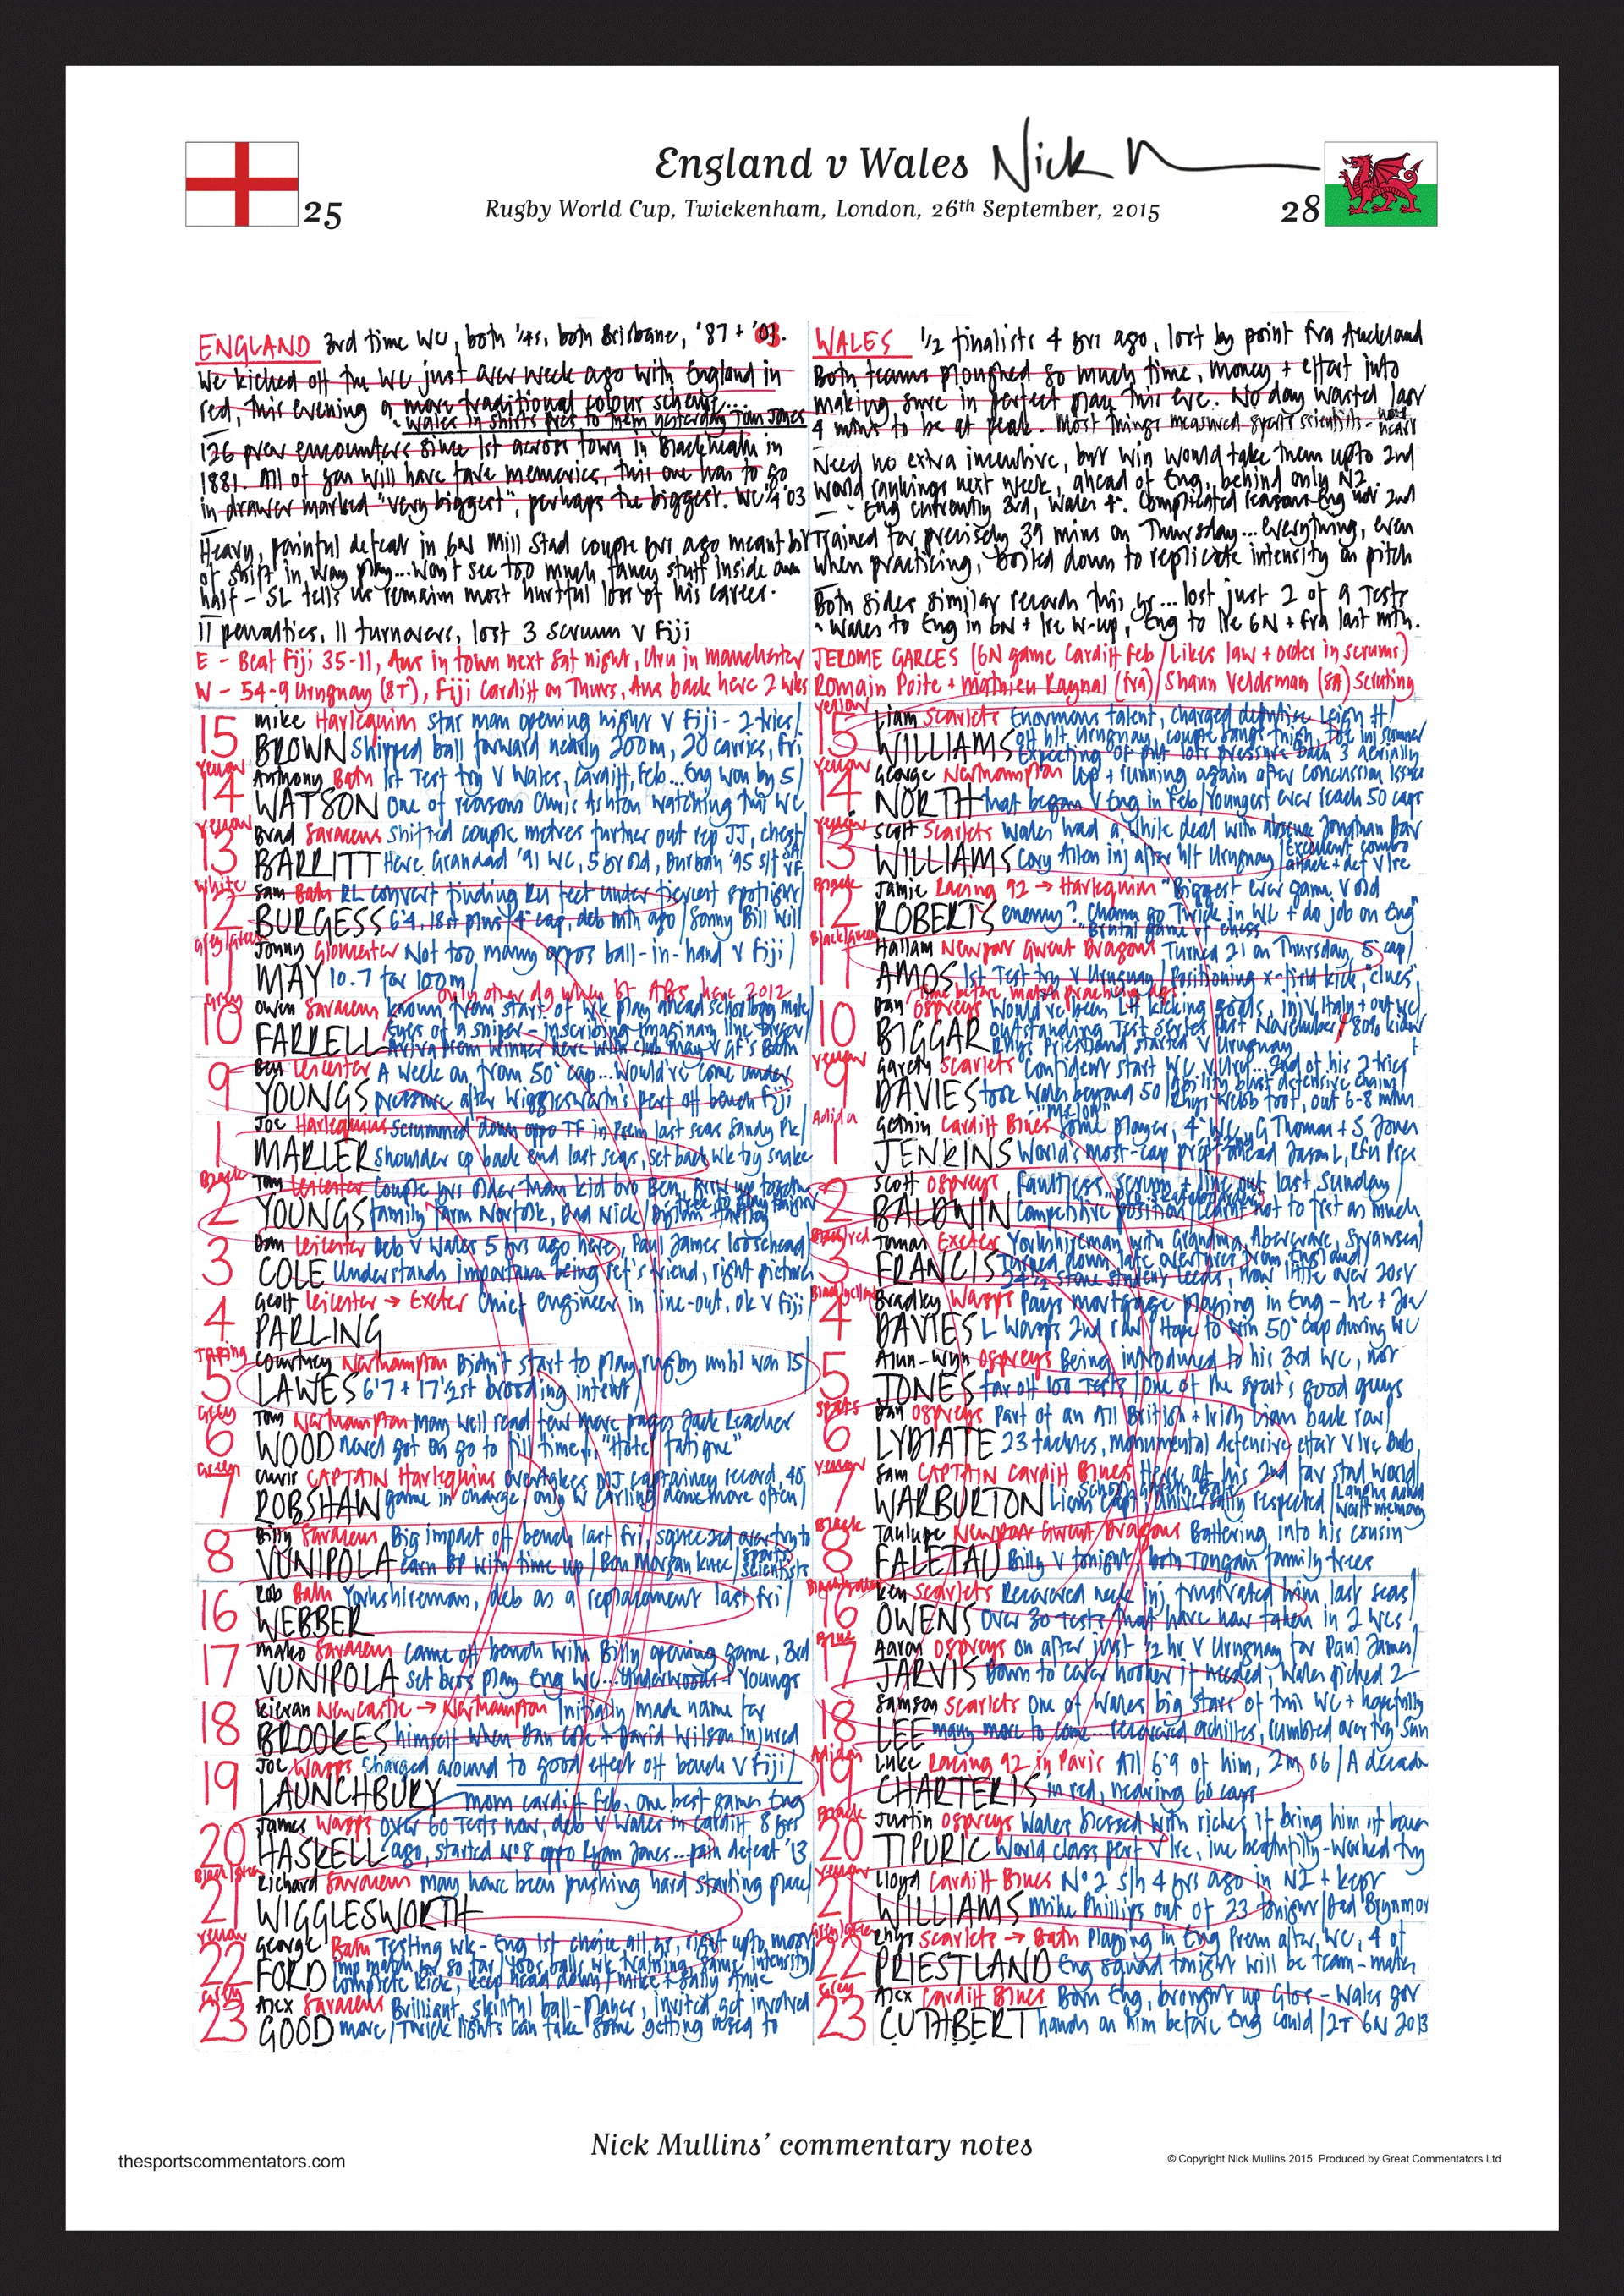 England v Wales Nick
25
Rugby World Cup, Twickenham, London, 26th September, 2015
28
ENGLAND 3rd time WC, both 1/4s, both Brisbane, '87 + '03.
We kicked off the WC just over week ago with England in
red, this evening a more traditional colour scheme....
- Wales in shirts pres to them yesterday Tom Jones
126 prev encounters since 1st across town in Blackheath in
1881. All of you will have fave memories, this one has to go
in drawer marked "very biggest", perhaps the biggest. WC 1/4 '03
Heavy, painful defeat in 6N Mill Stad couple yrs ago meant bit
of shift in way play...Won't see too much fancy stuff inside own
half - SL tells us remains most hurtful loss of his career.
11 penalties, 11 turnovers, lost 3 scrum v Fiji
E - Beat Fiji 35-11, Aus in town next Sat night, Uru in Manchester
W - 54-9 Uruguay (8T), Fiji Cardiff on Thurs, Aus back here 2 wks
WALES 1/2 finalists 4 yrs ago, lost by point Fra Auckland
Both teams ploughed so much time, money + effort into
making sure in perfect place this eve. No day wasted last
4 mths to be at peak. Most things measured sports scientists - not heart
Need no extra incentive, but win would take them upto 2nd
World rankings next week, ahead of Eng, behind only NZ.
- Eng currently 3rd, Wales 4. Complicated reason Eng not 2nd
Trained for precisely 39 mins on Thursday...everything, even
when practicing, boiled down to replicate intensity on pitch
Both sides similar records this yr...lost just 2 of 9 Tests
- Wales to Eng in 6N + Ire w-up, Eng to Ire 6N + Fra last mth.
JEROME GARCES (6N game Cardiff Feb / Likes law + order in scrums)
Romain Poite + Mathieu Raynal (Fra) / Shaun Veldsman (SA) Scruting
15 Mike Harlequin star man opening night v Fiji - 2 tries/
BROWN Shipped ball forward nearly 200m, 20 carries, Fri
Yellow
14 Anthony Bath 1st Test try v Wales, Cardiff, Feb...Eng won by 5/
WATSON One of reasons Chris Ashton watching this WC
Yellow
13 Brad Saracens Shifted couple metres further out rep JJ, chest/
BARRITT Here Grandad '91 WC, 5 yr old, Durban '95 s/f SA v F
White
12 Sam Bath RL convert finding RU feet under fiercest spotlight/
BURGESS 6'4, 18st plus/4° cap, deb mth ago/Sonny Bill Will
Grey/Green
11 Jonny Gloucester Not too many oppos ball-in-hand v Fiji/
MAY 10.7 for 100m/
only other dg when bt ABs here 2012
Grey
10 Owen Saracens known from start of wk play ahead schoolboy mate
FARRELL Eyes of a sniper - inscribing imaginary line target
9 Ben Leicester A week on from 50° cap...would've come under
YOUNGS pressure after Wigglesworth's perf off bench Fiji
1 Joe Harlequins Scrummed down oppo TF in Prem last seas Sandy Pk/
MARLER shoulder op back end last seas, set back wk by snake
Black
2 Tom Leicester Couple yrs older than kid bro Ben, grew up together
YOUNGS family farm Norfolk, Dad Nick
3 Dan Leicester Deb v Wales 5 yrs ago here, Paul James loosehead
COLE Understands importance being ref's friend, right pictures
4 Geoff Leicester → Exeter Chief engineer in line-out, ok v Fiji/
PARLING
Taping
5 Courtney Northampton Didn't start to play rugby until was 15/
LAWES 6'7 + 17 1/2st brooding intent/
Grey
6 Tom Northampton may well read few more pages Jack Reacher
WOOD novel got on go to fill time... "Hotel fatigue"
Green
7 Chris CAPTAIN Harlequins overtakes MJ captaincy record, 40°
ROBSHAW game in charge, only W Carling done more often/
8 Billy Saracens Big impact off bench last Fri, squeezed over try to
VUNIPOLA earn BP with time up/Ben Morgan knee/Sports scientists
16 Rob Bath Yorkshireman, deb as a replacement last Fri/
WEBBER
17 Mako Saracens came off bench with Billy opening game, 3rd
VUNIPOLA set bros play Eng WC...Underwoods + Youngs
18 Kieran Newcastle → Northampton Initially made name for
BROOKES himself when Dan Cole + David Wilson injured
19 Joe Wasps Charged around to good effect off bench v Fiji/
LAUNCHBURY mom Cardiff Feb, one best games Eng
20 James Wasps Over 60 Tests now, deb v Wales in Cardiff 8 yrs
HASKELL ago, started N°8 oppo Ryan Jones...pain defeat '13
Black/Green
21 Richard Saracens may have been pushing hard starting place/
WIGGLESWORTH
Yellow
22 George Bath Testing wk - Eng 1st choice all yr, right upto most
FORD imp match yr so far/400s balls wk training, same intensity/
complete kick, keep head down/Mike + Sally Anne
Grey
23 Alex Saracens Brilliant, skilful ball-player, invited get involved
GOOD more/Twick lights can take some getting used to
Yellow
15 Liam Scarlets Enormous talent, charged deputise Leigh H/
WILLIAMS off h/t Uruguay, couple bangs thigh, toe inj summer
Expecting Eng put lots pressure back 3 aerially
Yellow
14 George Northampton Up + running again after concussion issues
NORTH that began v Eng in Feb/Youngest ever reach 50 caps
Yellow
13 Scott Scarlets Wales had a while deal with absence Jonathan Dav
WILLIAMS Cory Allen inj after h/t Uruguay/Excellent combo attack + def v Ire
Black
12 Jamie Racing 92 → Harlequin "Biggest ever game v old
ROBERTS enemy? Chance go Twick in WC + do job on Eng"
"Brutal game of chess
Black/Green
11 Hallam Newport Gwent Dragons Turned 21 on Thursday, 5° cap/
AMOS 1st Test try v Uruguay/Positioning x-field kick, "clues"
10 Dan Ospreys Would've been LH kicking goals, inj v Italy + out WC/
BIGGAR Outstanding Test series last November/80% kicker
Rhys Priestland started v Uruguay
Yellow
9 Gareth Scarlets Confident start WC v Uru...2nd of his 2 tries
DAVIES took Wales beyond 50/Ability bust defensive chains/
Rhys Webb foot, out 6-8 mths
Adidas
1 Gethin Cardiff Blues "Melon" Some player, 4° WC, G Thomas + S Jones
JENKINS World's most-cap prop, ahead Jason L, RFU Pge
2 Scott Ospreys Faultless scrum + line-out last Sunday/
BALDWIN Competitive position/Learnt not to fret as much
3 Tomas Exeter Yorkshireman with Grandma, Abercrave, Swansea/
FRANCIS Turned down late overtures from England/
24 1/2 stone student Leeds, now little over 20st
Black/Yellow
4 Bradley Wasps Pays mortgage playing in Eng - he + Joe
DAVIES L Wasps 2nd row/Hope to win 50° cap during WC
5 Alun-Wyn Ospreys Being introduced to his 3rd WC, not
JONES far off 100 Tests/One of the sport's good guys
6 Dan Ospreys Part of an All British + Irish Lion back row/
LYDIATE 23 tackles, monumental defensive effort v Ire Dub
Yellow
7 Sam CAPTAIN Cardiff Blues Here at his 2nd fav stad world/
WARBURTON Lions Capt/Universally respected/
Black
8 Taulupe Newport Gwent Dragons Battering into his cousin
FALETAU Billy V tonight, both Tongan family trees
16 Ken Scarlets Recovered neck inj, frustrated him last seas/
OWENS Over 30 Tests that have now taken in 2 WCs
Blue
17 Aaron Ospreys On after just 1/2 hr v Uruguay for Paul James/
JARVIS Down to cover hooker if needed, Wales picked 2
18 Samson Scarlets One of Wales big stars of this WC + hopefully
LEE many more to come...recovered achilles, rumbled over try Sun
Adidas
19 Luke Racing 92 in Paris All 6'9 of him, 2m 06/A decade
CHARTERIS in red, nearing 60 caps
Black
20 Justin Ospreys Wales blessed with riches if bring him off bench
TIPURIC World class perf v Ire, inc beautifully-worked try
Yellow
21 Lloyd Cardiff Blues N°2 s/h 4 yrs ago in NZ + kept
WILLIAMS Mike Phillips out of 23 tonight/Dad Brynmor
Grey/Green
22 Rhys Scarlets → Bath Playing in Eng Prem after WC, 4 of
PRIESTLAND Eng squad tonight will be team-mates
Grey
23 Alex Cardiff Blues Born Eng, brought up Glos - Wales got
CUTHBERT hands on him before Eng could/2T 6N 2013
Nick Mullins' commentary notes
thesportscommentators.com
© Copyright Nick Mullins 2015. Produced by Great Commentators Ltd